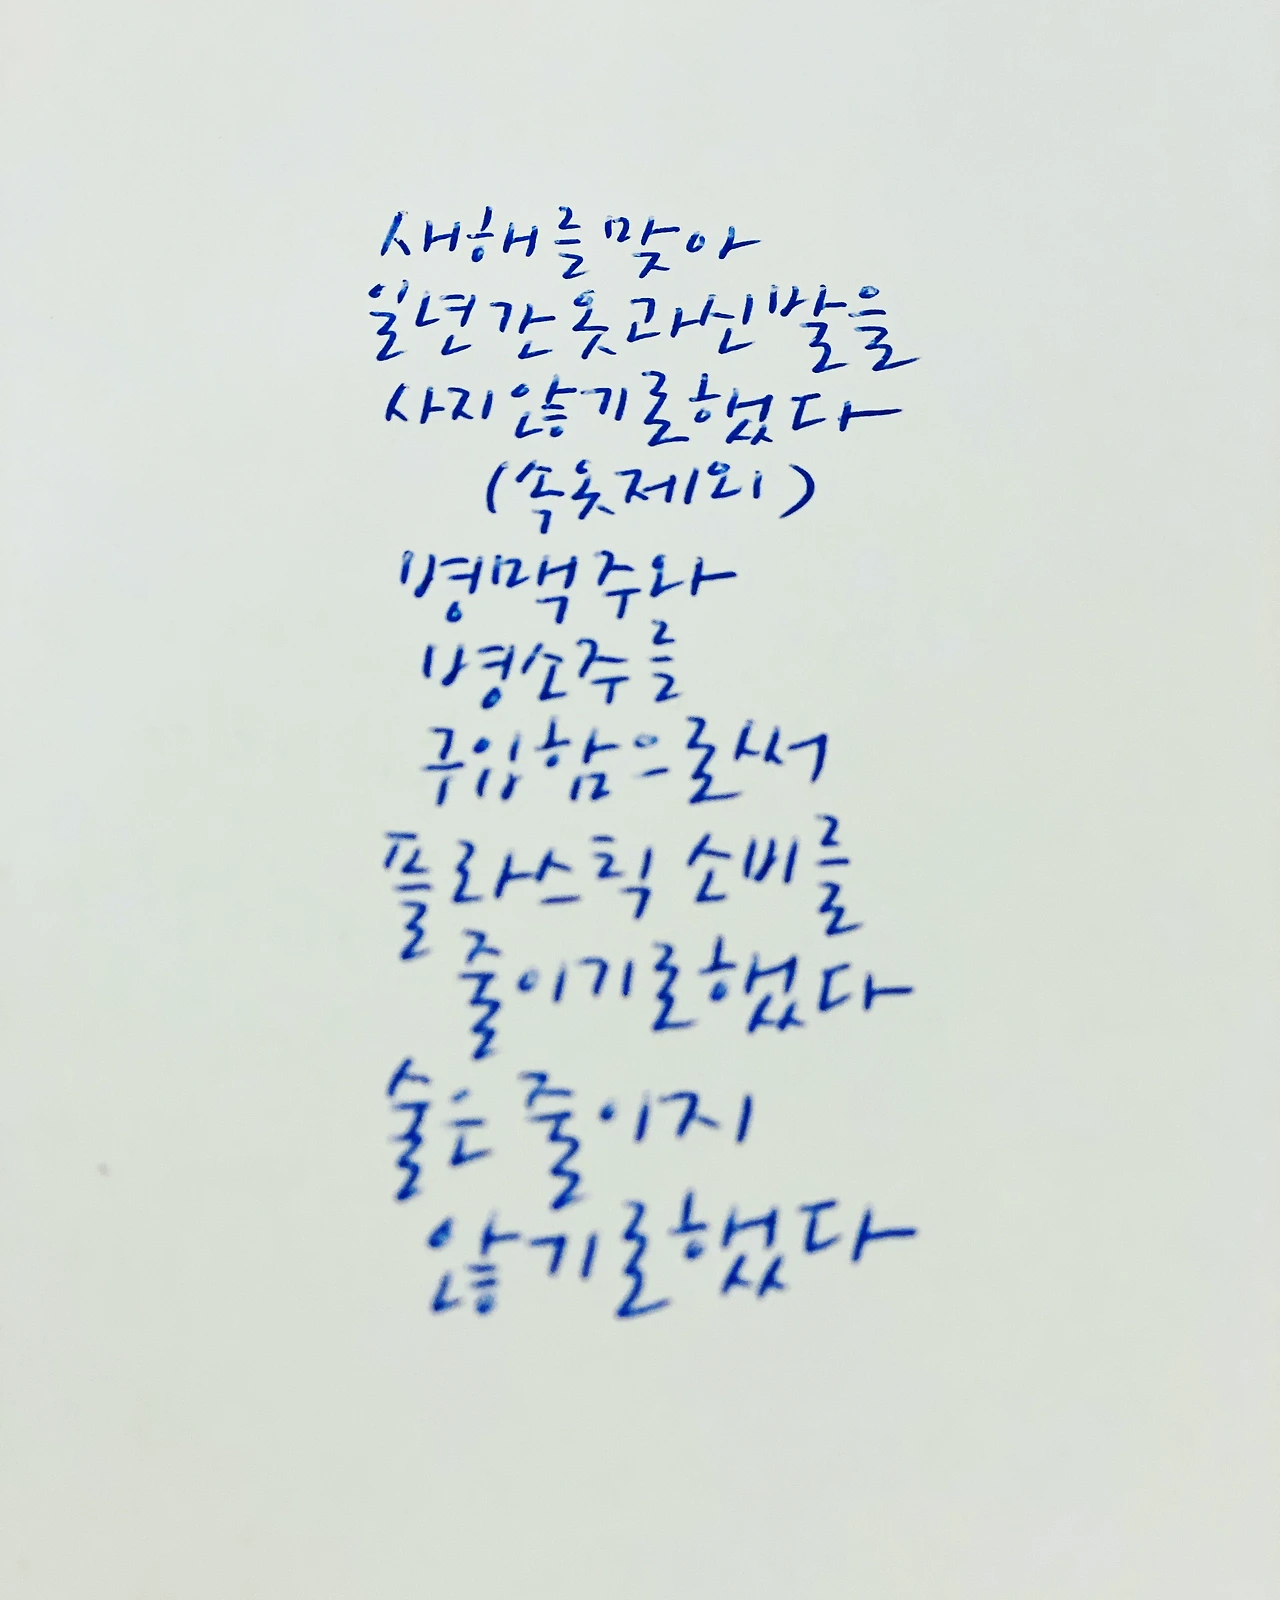 새해를 맞아
일년간 옷과 신발을
사지 않기로 했다
(속옷 제외)
병맥주와
병소주를
구입함으로써
플라스틱 소비를
줄이기로 했다
술은 줄이지
않기로 했다